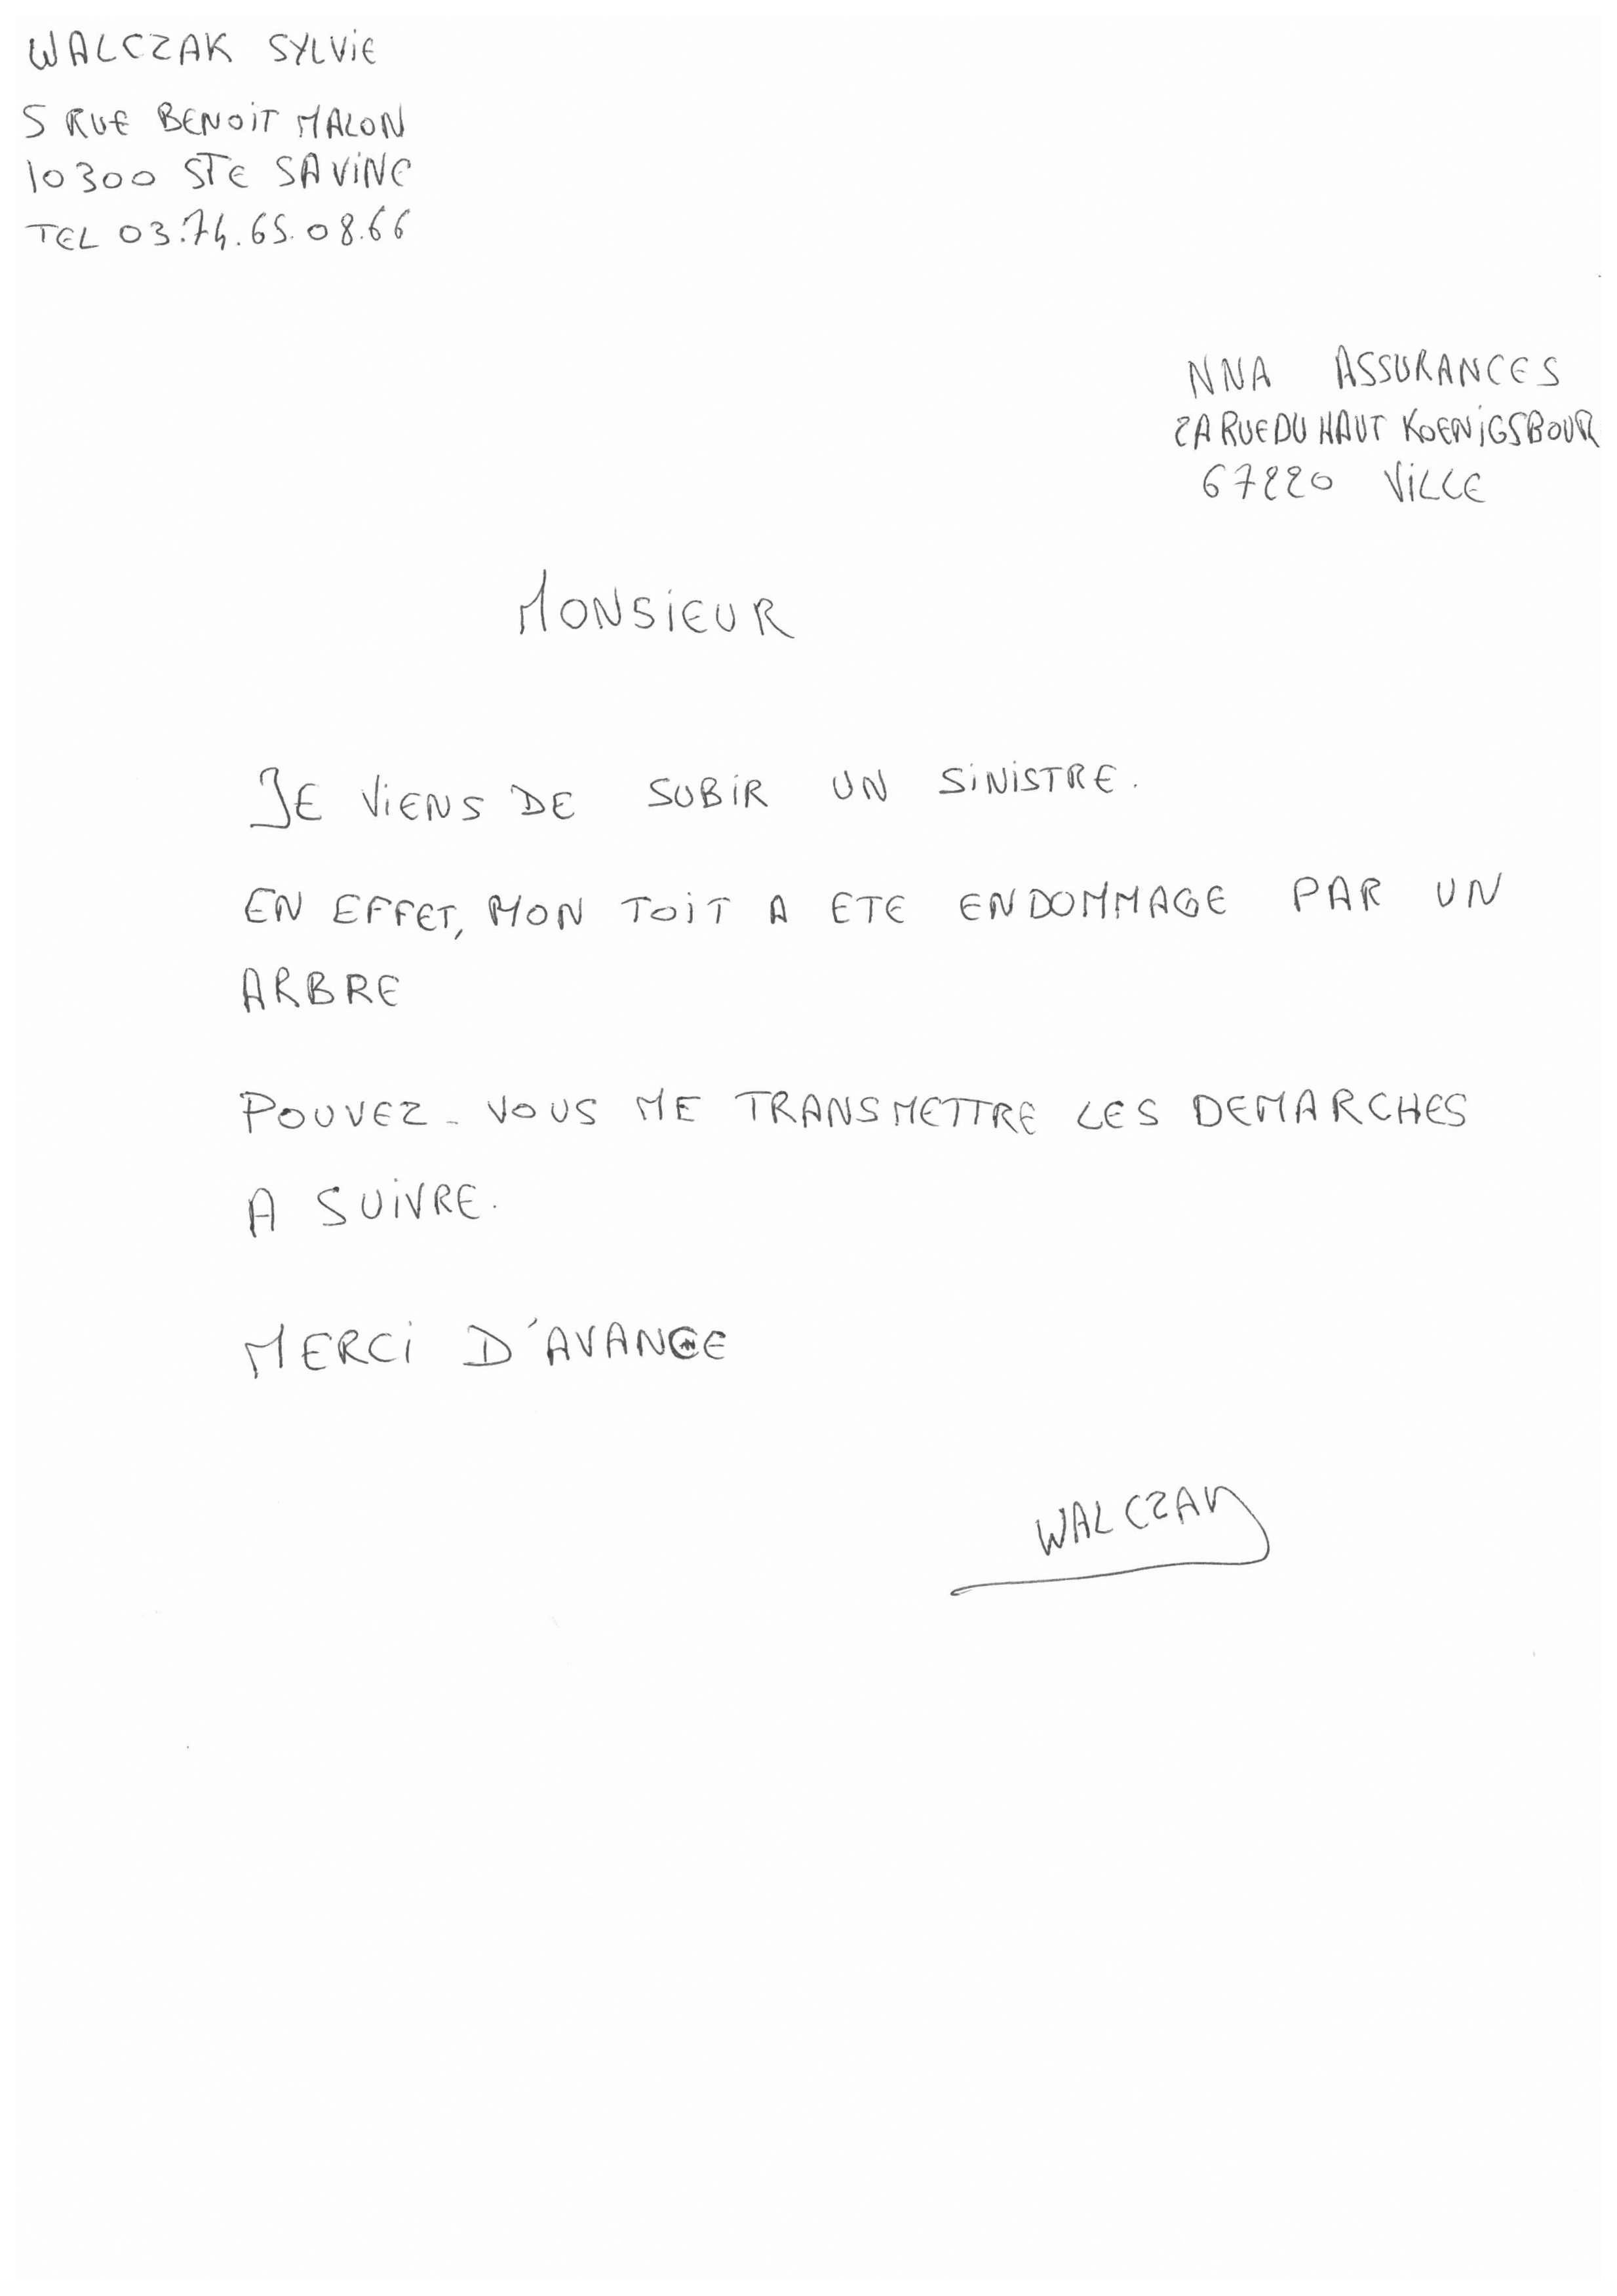 WALCZAK SYLVIE
5 RUE BENOIT MALON
10300 STE SAVINE
TEL 03.74.65.08.66
NNA ASSURANCES
2A RUE DU HAUT KOENIGSBOUR
67220 VILLE
MONSIEUR
JE VIENS DE SUBIR UN SINISTRE.
EN EFFET, MON TOIT A ETE ENDOMMAGE PAR UN
ARBRE
POUVEZ-VOUS ME TRANSMETTRE LES DEMARCHES
A SUIVRE.
MERCI D'AVANCE
WALCZAK